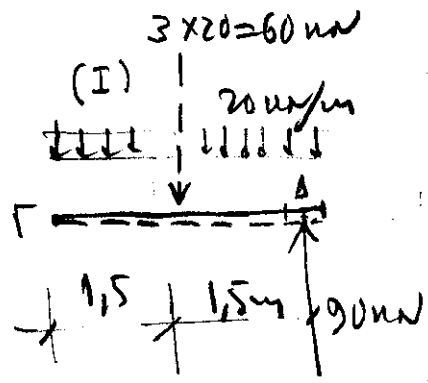 3 x 20 = 60 kN
(I)
20 kN/m
Γ
Δ
1,5
1,5m
90 kN